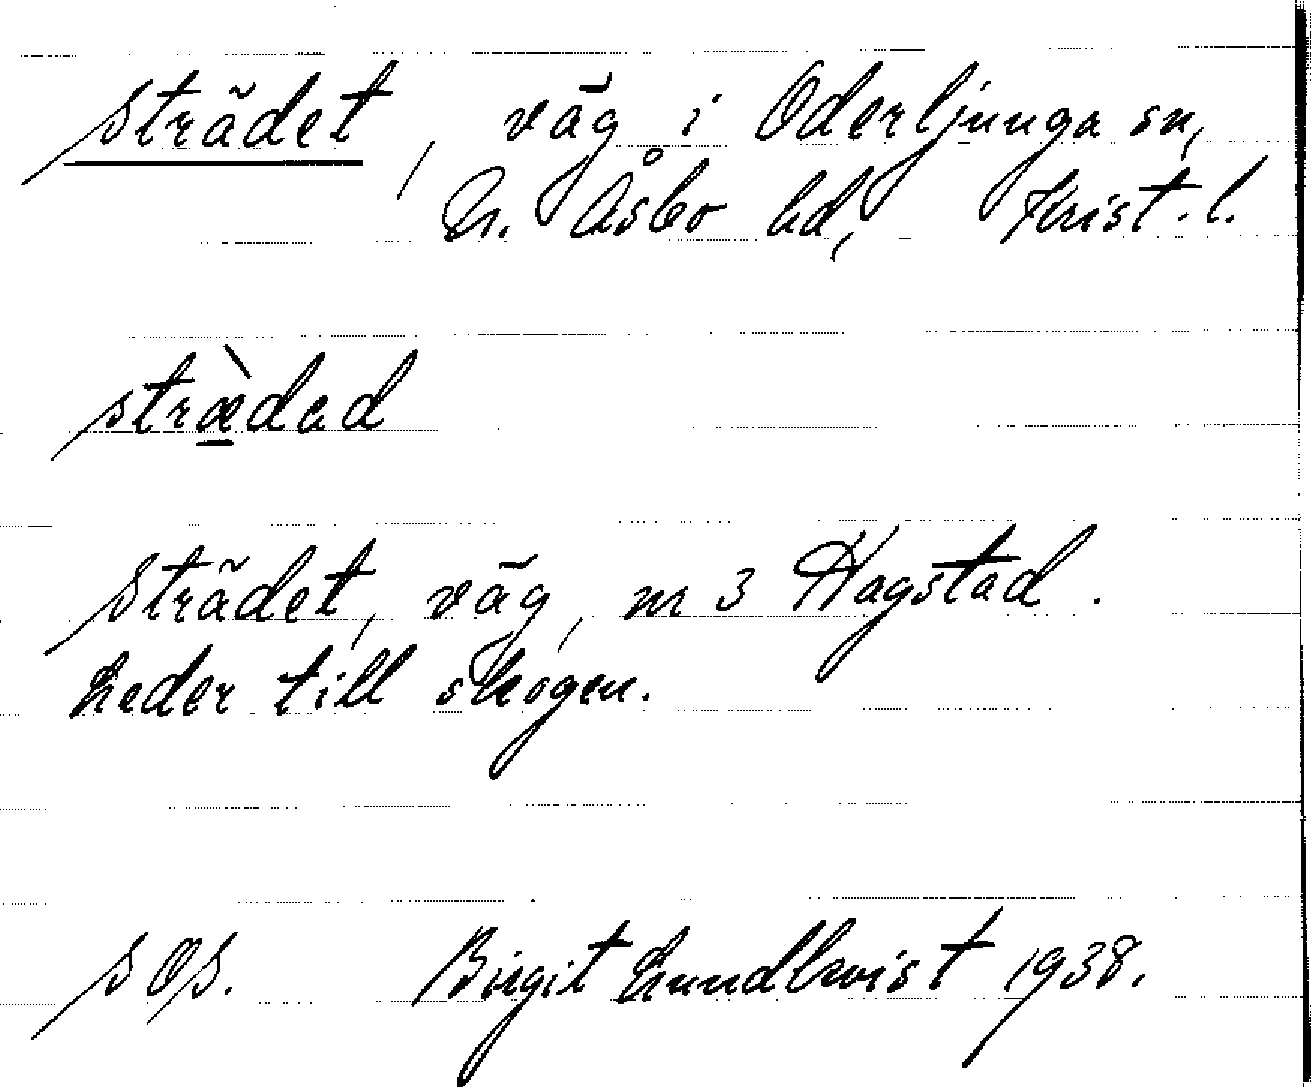 Strädet, väg i Oderljunga sn,
N. Åsbo hd, Krist. l.
stræ̀dad
Strädet, väg, nr 3 Hagstad.
Leder till skogen.
SOS. Birgit Lundkvist 1938.